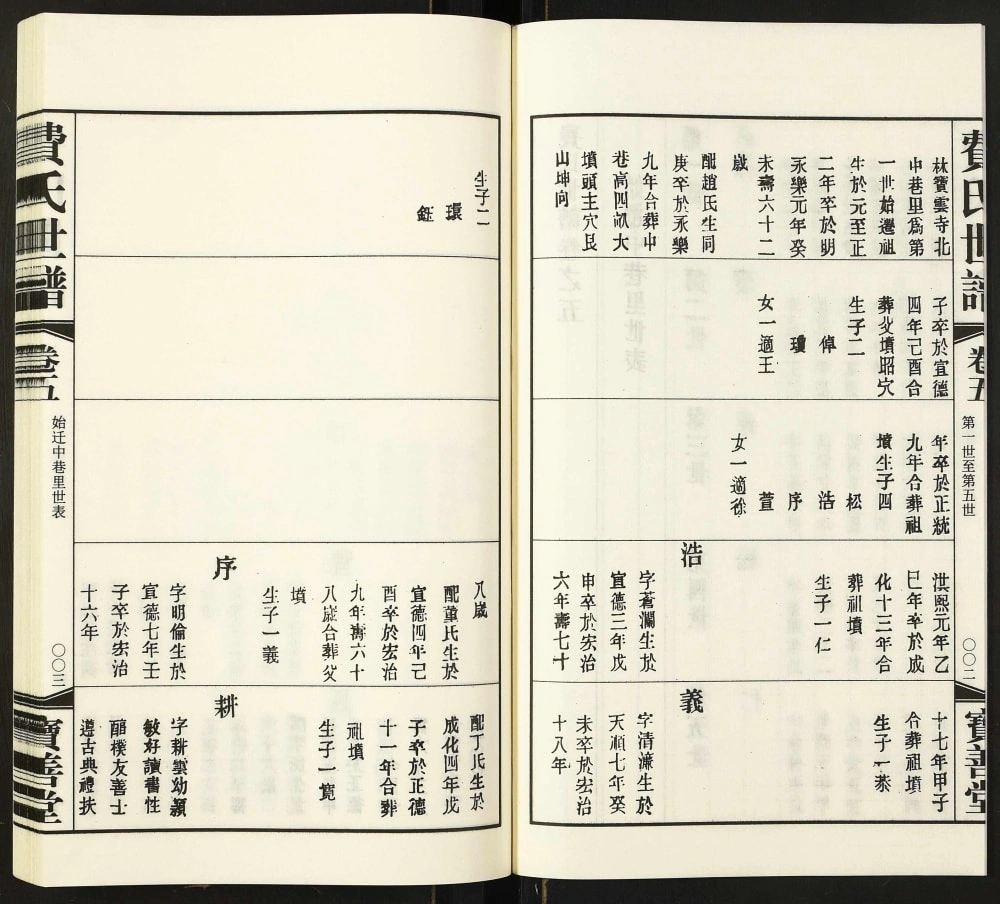 費氏世譜
卷五
第一世至第五世
〇〇二
寶善堂
林寶雲寺北
中巷里爲第
一世始遷祖
生於元至正
二年卒於明
永樂元年癸
未壽六十二
歲
配趙氏生同
庚卒於永樂
九年合葬中
巷高四畝大
墳頭主穴艮
山坤向
子卒於宣德
四年己酉合
葬父墳昭穴
生子二
倬
瓊
女一適王
年卒於正統
九年合葬祖
墳生子四
松
浩
序
萱
女一適徐
洪熙元年乙
巳年卒於成
化十三年合
葬祖墳
生子一仁
浩
字蒼瀾生於
宣德三年戊
申卒於宏治
六年壽七十
十七年甲子
合葬祖墳
生子一恭
義
字清濂生於
天順七年癸
未卒於宏治
十八年
生子二
環
鈺
八歲
配董氏生於
宣德四年己
酉卒於宏治
九年壽六十
八歲合葬父
墳
生子一羲
序
字明倫生於
宣德七年壬
子卒於宏治
十六年
配丁氏生於
成化四年戊
子卒於正德
十一年合葬
祖墳
生子一寬
耕
字耕雲幼穎
敏好讀書性
醇樸友善士
遵古典禮扶
費氏世譜
卷五
始迁中巷里世表
〇〇三
寶善堂